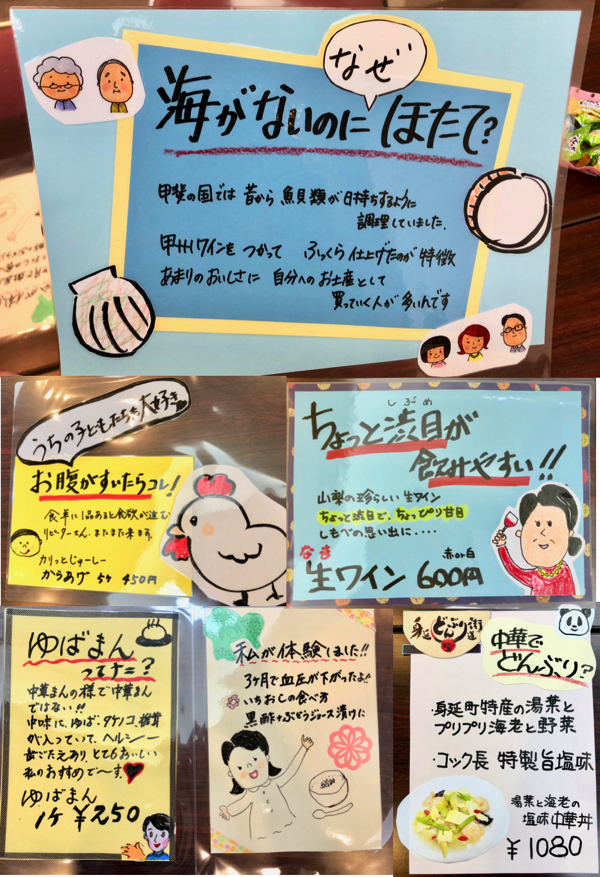 なぜ
海がないのに ほたて?
甲斐の国では 昔から 魚貝類が日持ちするように
調理していました。
甲州ワインを つかって ふっくら 仕上げたのが 特徴
あまりのおいしさに 自分への お土産として
買っていく人が 多いんです
うちの子どもたちも大好き
お腹がすいたらコレ!
食卓に1品あると食欲が進む
リピーターさん、またまた来ます。
カリッとじゅーしー
からあげ 5ケ 450円
しぶめ
ちょっと渋目が
飲みやすい!!
山梨の珍らしい 生ワイン
ちょっと渋目で、ちょっぴり甘目
しもべの思い出に・・・・
赤or白
なま
生ワイン 600円
ゆばまん
ってナニ?
中華まんの様で中華まん
ではない!!
中味に、ゆば、タケノコ、椎茸
が入っていて、ヘルシー
歯ごたえあり、とてもおいしい
私のおすすめで〜す。
ゆばまん
1ケ ¥250
私が体験しました!!
3ヶ月で血圧が下がったよ!!
いちおしの食べ方
黒酢+ぶどうジュース漬けに
身延 どんぶり街道
中華で
どんぶり?
・身延町特産の湯葉と
プリプリ海老と野菜
・コック長 特製旨塩味
湯葉と海老の
塩味中華丼
¥1080